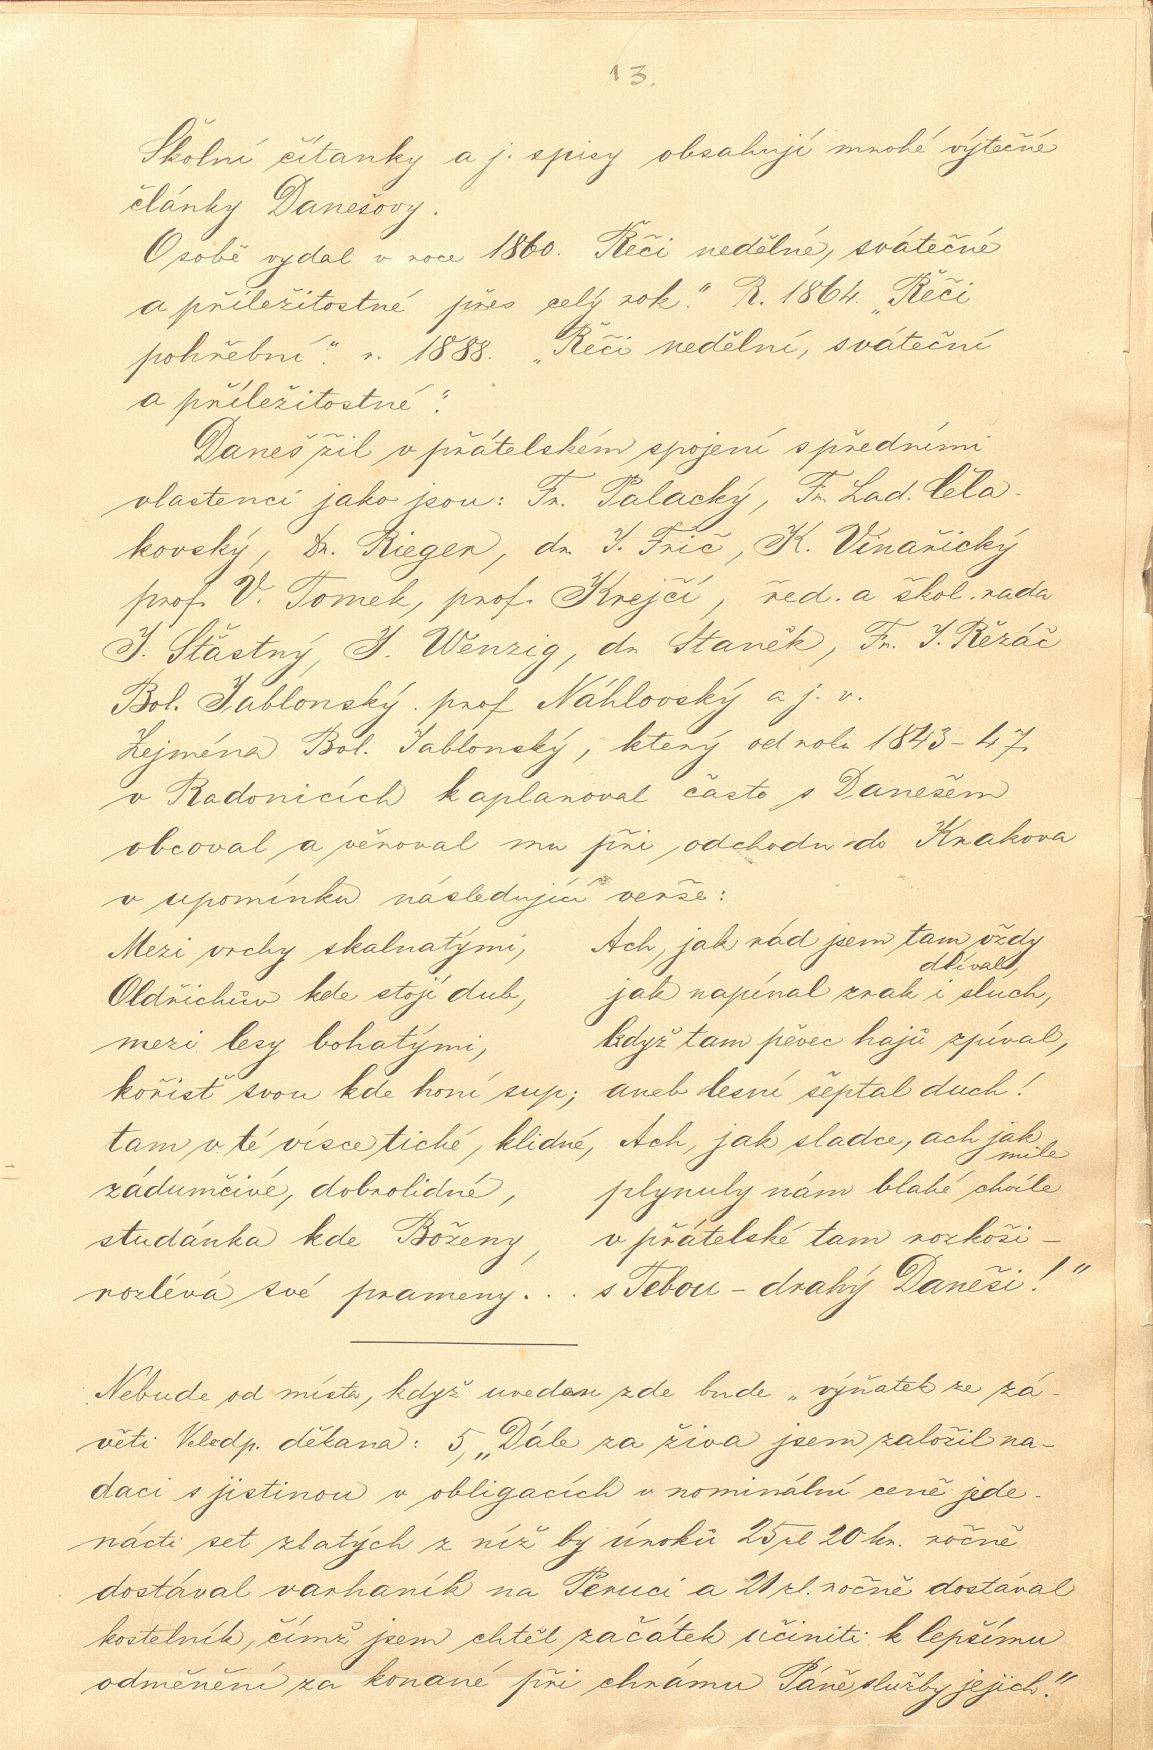 13.
Školní čítanky a j. spisy obsahují mnohé výtečné
články Danešovy.
Osobě vydal v roce 1860. Řeči nedělné, svátečné
a příležitostné přes celý rok." R. 1864. „Řeči
pohřební". r. 1888. „Řeči nedělní, sváteční
a příležitostné".
Daneš žil v přátelském spojení s předními
vlastenci jako jsou: Fr. Palacký, Fr. Lad. Čela-
kovský, Dr. Rieger, dr. J. Frič, K. Vinařický
prof. V. Tomek, prof. Krejčí, řed. a škol. rada
J. Šťastný, J. Wenzig, dr. Staněk, Fr. J. Řězáč
Bol. Jablonský. prof Náhlovský a j. v.
Zejména Bol. Jablonský, který od roku 1843-47.
v Radonicích kaplanoval často s Danešem
obcoval a věnoval mu při odchodu do Krakova
v upomínku následující verše:
Mezi vrchy skalnatými,
Oldřichův kde stojí dub,
mezi lesy bohatými,
kořisť svou kde honí sup;
tam v té vísce tiché, klidné,
zádumčivé, dobrolidné,
studánka kde Boženy,
rozlévá své prameny...
Ach, jak rád jsem tam vždy
dlíval,
jak napínal zrak i sluch,
když tam pěvec hajů zpíval,
aneb lesní šeptal duch!
Ach, jak sladce, ach jak
mile
plynuly nám blahé chvíle
v přátelské tam rozkoši –
s Tebou – drahý Daněši!"
Nebude od místa, když uveden zde bude „výňatek ze zá-
věti Velodp. děkana: 5, „Dále za živa jsem založil na-
daci s jistinou v obligacích v nominální ceně jede-
nácti set zlatých z níž by úroků 25 zl 20 kr. ročně
dostával varhaník na Peruci a 21 zl. ročně dostával
kostelník, čímž jsem chtěl začátek učiniti k lepšímu
odměnění za konané při chrámu Páně služby jejich."